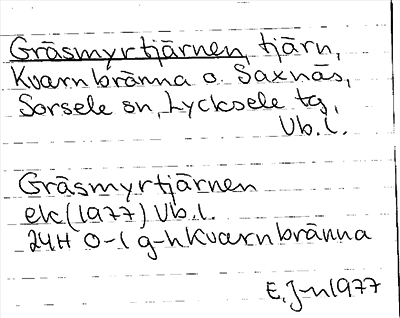 Gräsmyrtjärnen, tjärn,
Kvarnbränna o. Saxnäs,
Sorsele sn, Lycksele tg,
Vb. l.
Gräsmyrtjärnen
ek (1977) Vb. l.
24H 0-1 g-h Kvarnbränna
E. J-n 1977